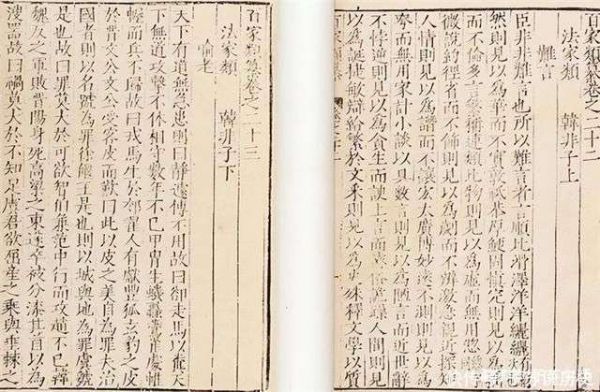 百家類纂卷之二十二
法家類 韓非子上
難言
臣非非難言也所以難言者言順比滑澤洋洋纚纚
然則見以為華而不實敦祇恭厚鯁固慎完則見以為
而不倫多言繁稱連類比物則見以為虛而無用總
微說約徑省而不飾則見以為劌而不辯激急親近探知
人情則見以為譖而不讓宏大廣博妙遠不測則見以為
夸而無用家計小談以具數言則見以為陋言而近世辭
不悖逆則見以為貪生而諛上言而遠俗詭躁人間則見
以為誕捷敏辯給繁於文采則見以為史殊釋文學以質
百家類纂
百家類纂卷之二十三
法家類 韓非子下
喻老
天下有道無急患則曰靜遽傳不用故曰却走馬以糞天
下無道攻擊不休相守數年不已甲冑生蟣蝨鷰雀處帷
幄而兵不歸故曰戎馬生於郊翟人有獻豐狐玄豹之皮
於晉文公文公受客皮而歎曰此以皮之美自為罪夫治
國者則以名號為罪徐偃王是也則以城與地為罪虞虢
是也故曰罪莫大於可欲智伯兼范中行而攻趙不已韓
魏反之軍敗晉陽身死高梁之東遂卒被分漆其首以為
溲器故曰禍莫大於不知足虞君欲屈產之乘與垂棘之